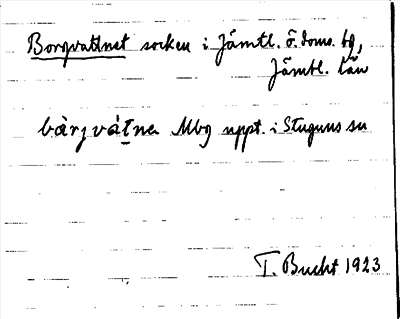 Borgvattnet socken i Jämtl. ö. doms. tg,
Jämtl. län
bàrjvátna Mbg uppt. i Stuguns sn
T. Bucht 1923